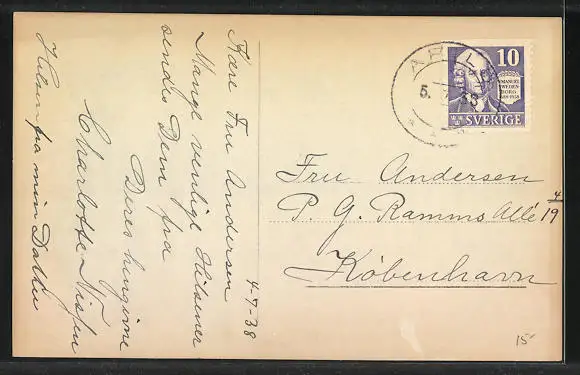 4-7-38
Kære Fru Andersen
Mange venlige Hilsener
sendes Dem fra
Deres hengivne
Charlotte Nissen
Hilsen fra min Datter
10
EMANUEL
SWEDEN
BORG
1688-1938
SVERIGE
5. 38
Fru Andersen
P. G. Ramms Allé 19 4
København
15